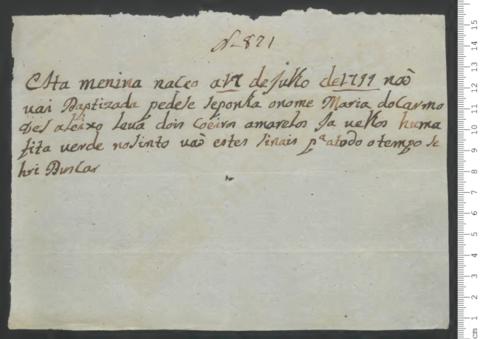 N 821
Esta menina naceo a 17 de Julho de 1799 naõ
vai Baptizada pedese se ponha o nome Maria do Carmo
de S aleixo leva dois Coeiros amarelos Ja velhos huma
fita verde no sinto vaõ estes sinais pª a todo o tempo se
hri Buscar